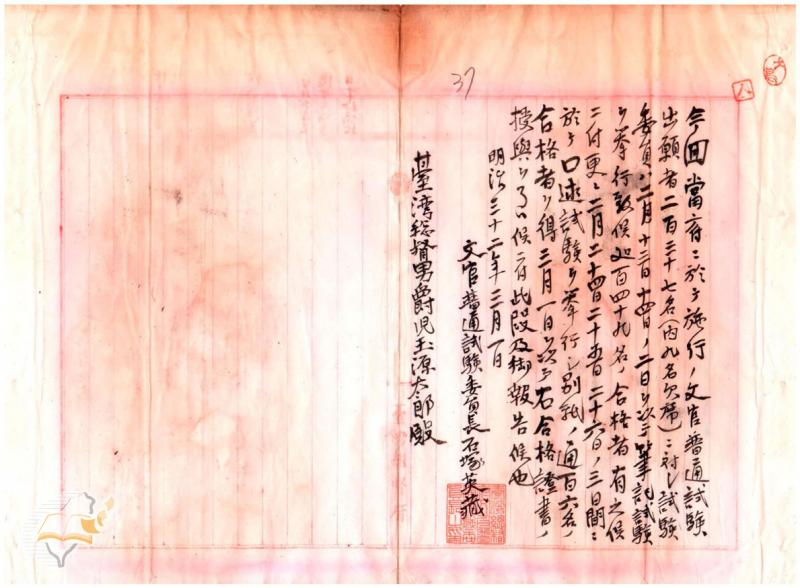 今回當府ニ於テ施行ノ文官普通試驗
出願者二百三十七名(内九名欠席)ニ対シ試験
委員ハ二月十三日十四日ノ二日ヲ以テ筆記試験
ヲ挙行致候処百四十九名ノ合格者有之候
ニ付更ニ二月二十四日二十五日二十六日ノ三日間ニ
於テ口述試験ヲ挙行シ別紙ノ通百六名ノ
合格者ヲ得三月一日ヲ以テ右合格證書ノ
授與ヲ了ヘ候ニ付此段及御報告候也
明治三十二年三月一日
文官普通試驗委員長石塚英藏
臺湾総督男爵児玉源太郎殿
37
八